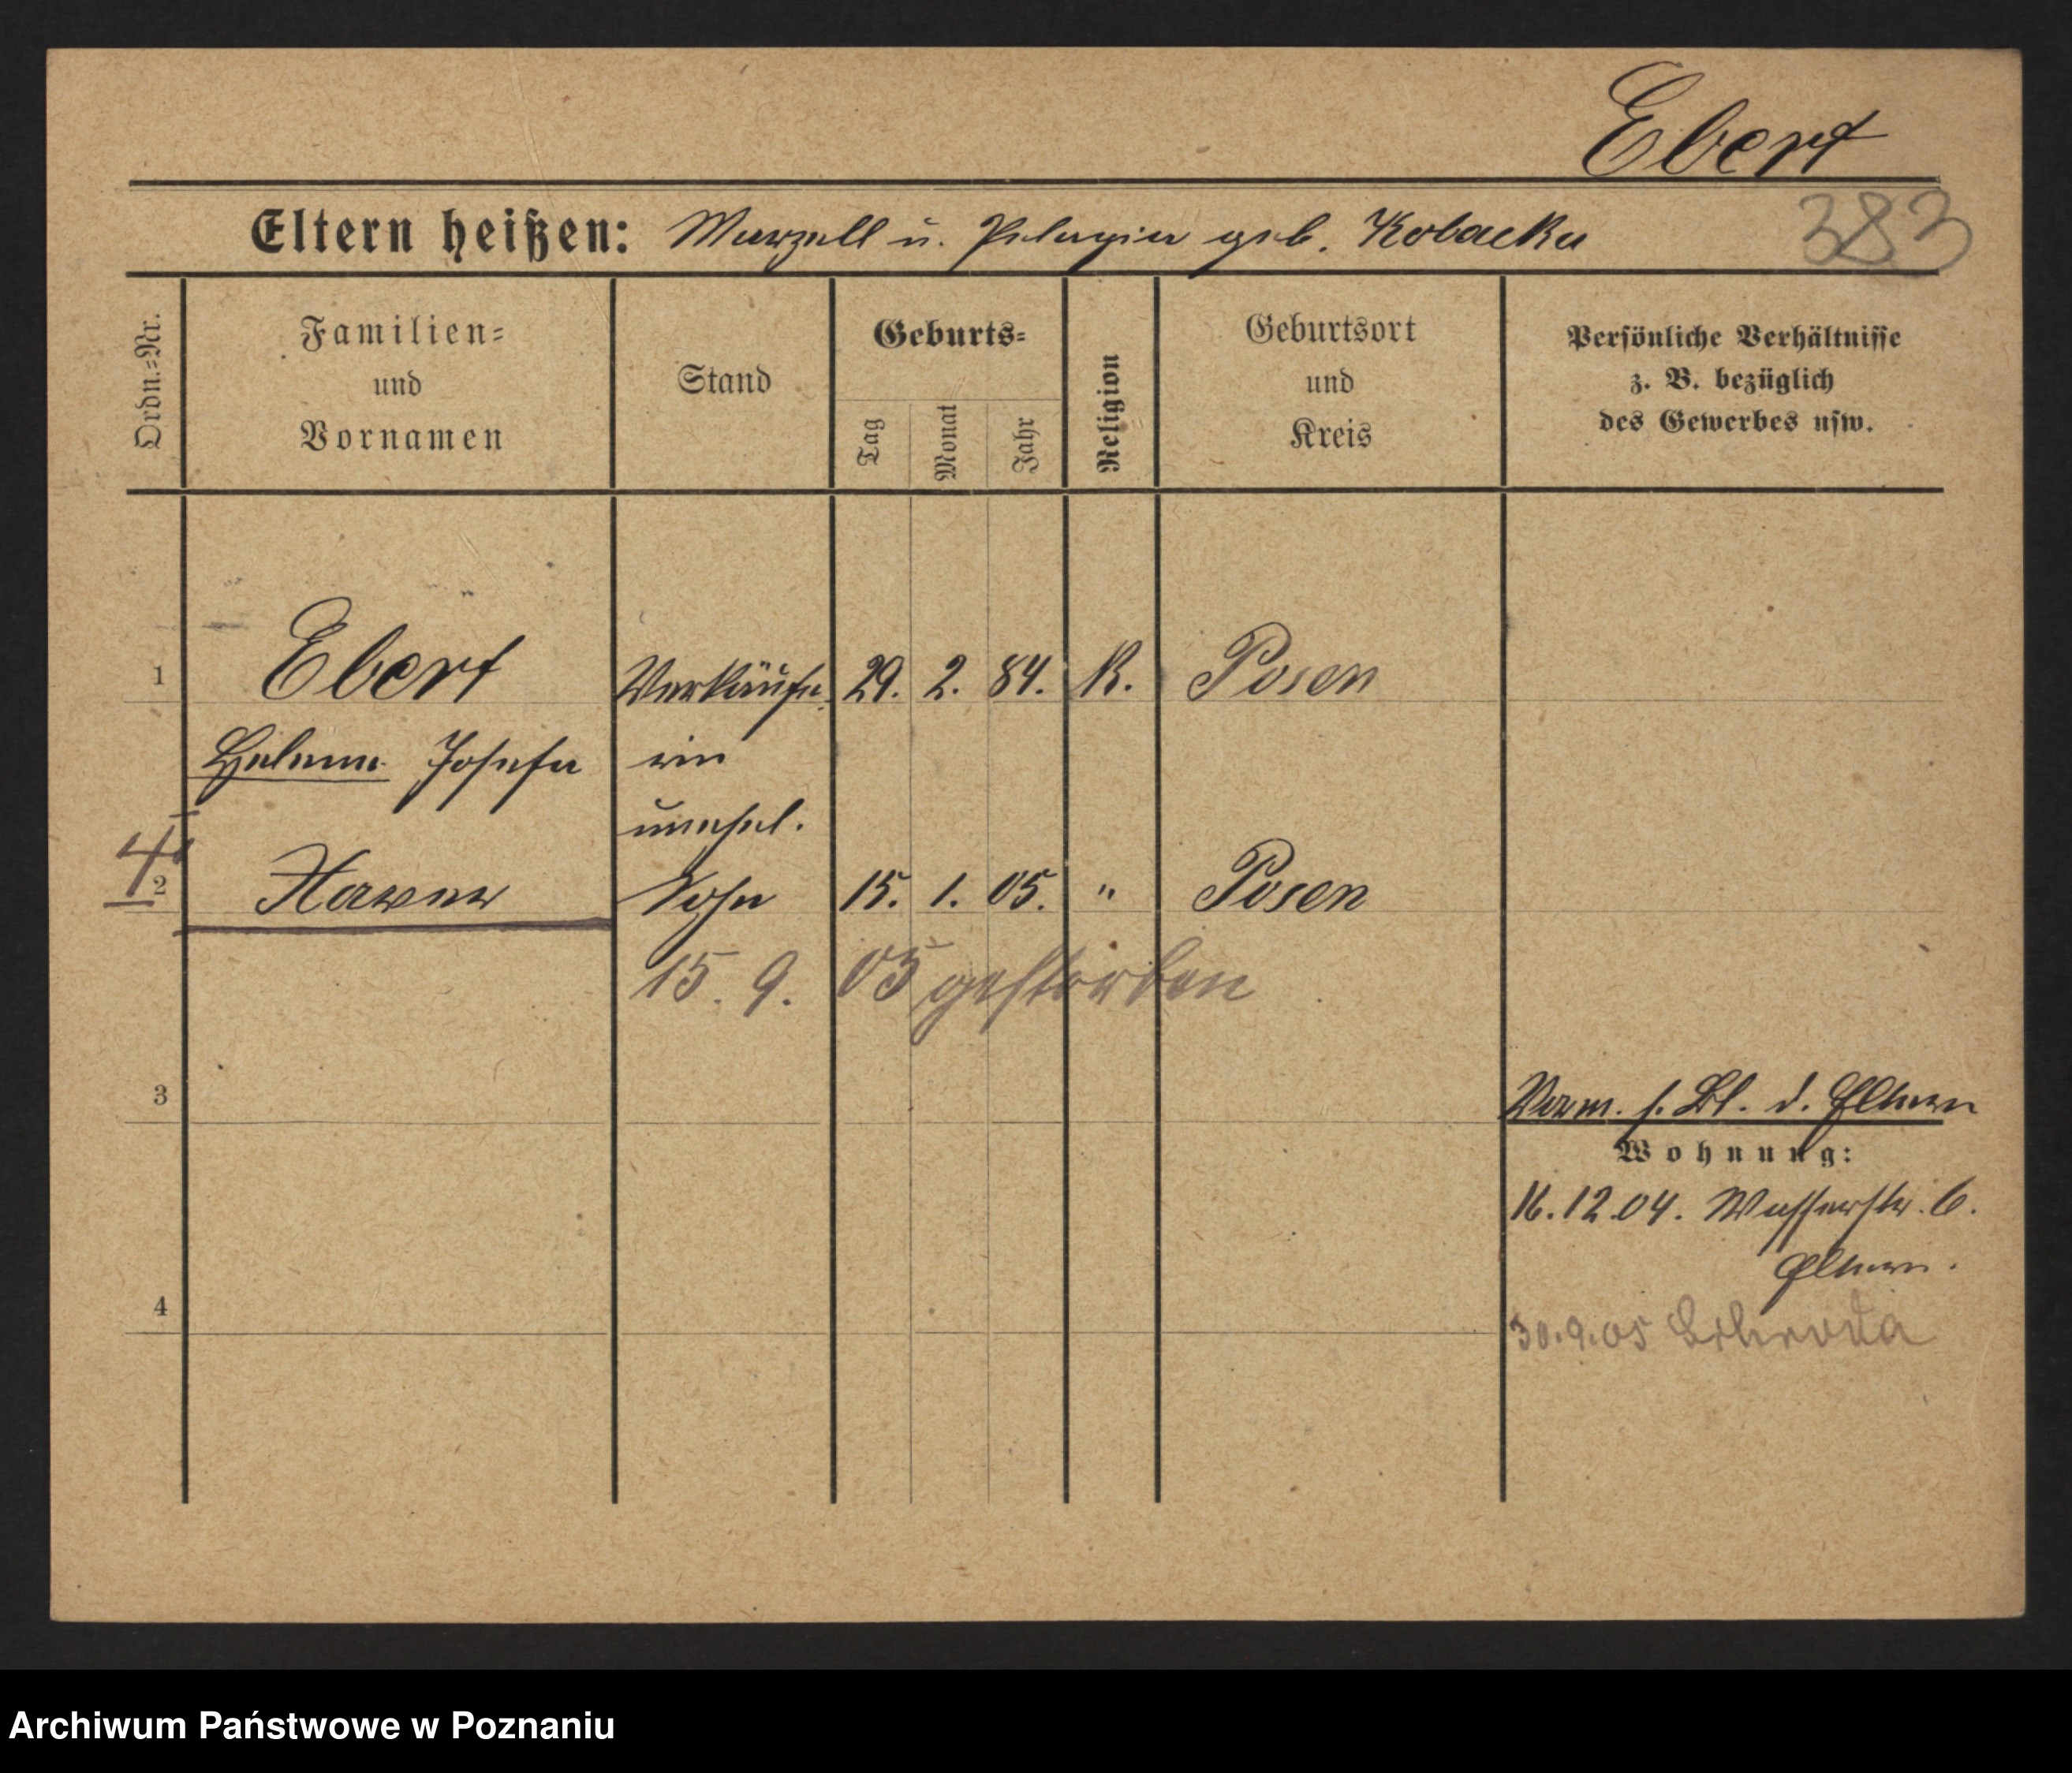 Ebert
Eltern heißen: Marzell u. Pelagia geb. Kobacka
383
Ordn.=Nr.
Familien=
und
Vornamen
Stand
Geburts=
Tag
Monat
Jahr
Religion
Geburtsort
und
Kreis
Persönliche Verhältnisse
z. B. bezüglich
des Gewerbes usw.
1 Ebert Verkäufe 29. 2. 84. K. Posen
Helene Josefa rin
unehel.
2 Sohn 15. 1. 05. " Posen
15. 9. 05 gestorben
3
Verm. s. Bl. d. Eltern
Wohnung:
16.12.04. Wasserstr. 6.
Eltern.
4
30.9.05 Schroda
Archiwum Państwowe w Poznaniu